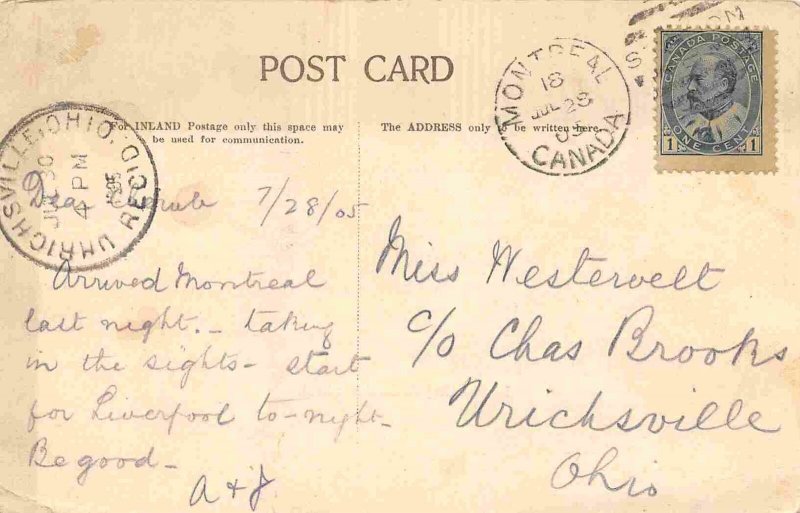 POST CARD
For INLAND Postage only this space may
be used for communication.
The ADDRESS only to be written here.
MONTREAL
18
JUL 28
05
CANADA
CANADA POSTAGE
1 ONE CENT 1
UHRICHSVILLE, OHIO. REC'D
JUL 30
4 PM
1905
Dear
7/28/05
Arrived Montreal
last night. - taking
in the sights - start
for Liverpool to-night-
Be good -
A & J.
Miss Westervelt
c/o Chas Brooks
Urichsville
Ohio